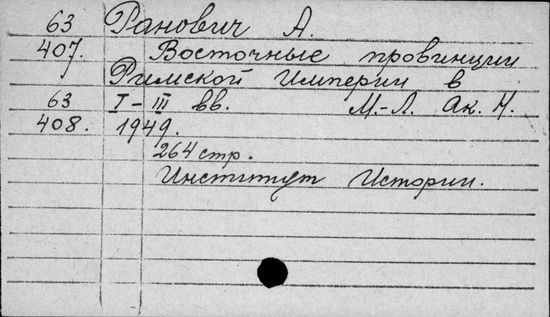 63 Ранович А.
407. Восточные провинции
Римской Империи в
63 I–III вв. М.-Л. Ак. Н.
408. 1949.
264 стр.
Институт Истории.